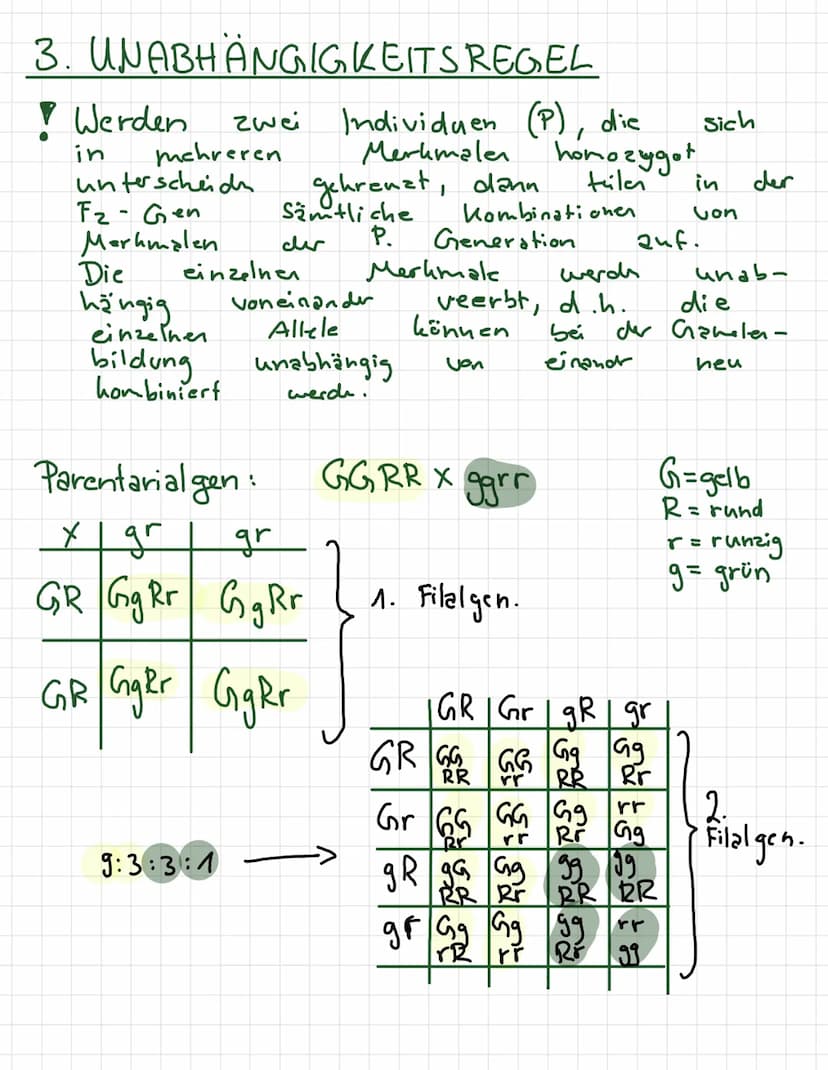 3. UNABHÄNGIGKEITSREGEL
! Werden zwei Individuen (P), die sich
in mehreren Merkmalen homozygot
unterscheidn gekreuzt, dann teilen in der
F2 - Gen Sämtliche Kombinationen von
Merkmalen der P. Generation auf.
Die einzelnen Merkmale werdn unab-
hängig voneinander veerbt, d.h. die
einzelnen Allele können bei der Gameten-
bildung unabhängig von einandr neu
kombiniert werde.
Parentarialgen: GGRR x ggrr
G=gelb
R = rund
r = runzig
g = grün
x | gr | gr
GR | GgRr | GgRr
GR | GgRr | GgRr
1. Filalgen.
GR | Gr | gR | gr
GR | GG RR | GG rr | Gg RR | Gg Rr
Gr | GG Rr | GG rr | Gg Rr | rr Gg
gR | gG RR | Gg Rr | gg RR | gg RR
gr | Gg rR | Gg rr | gg Rr | rr gg
2.
Filalgen.
9:3:3:1 →